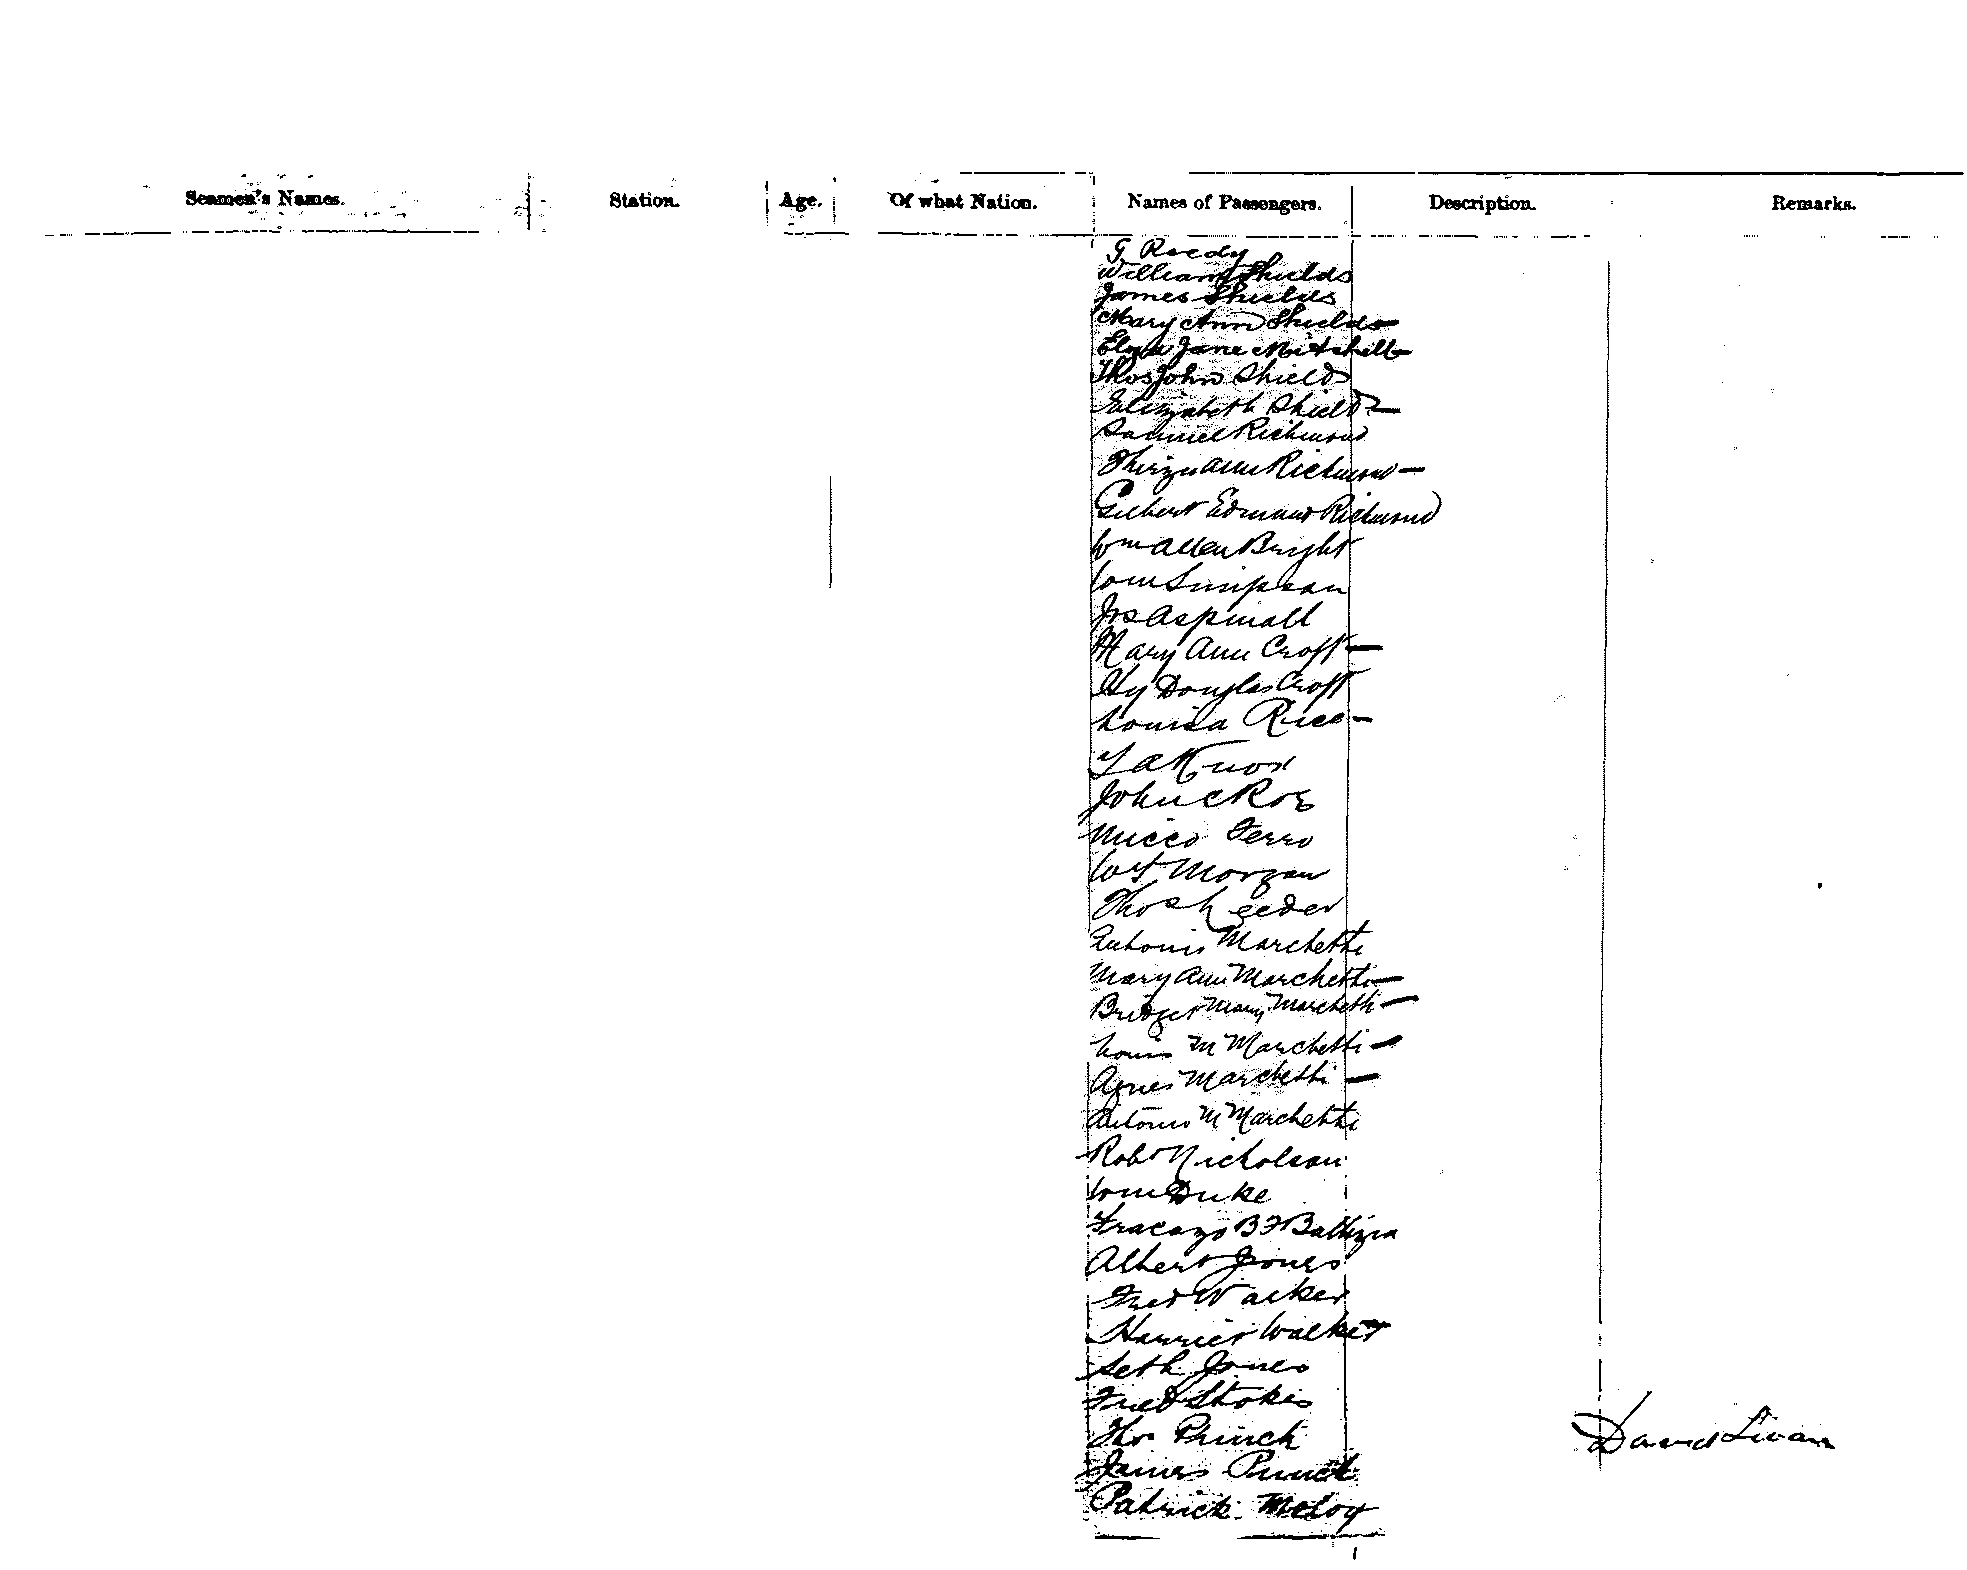 Seamen's Names. Station. Age. Of what Nation. Names of Passengers. Description. Remarks.
G. Reedy
William Shields
James Shields
Mary Ann Shields —
Eliza Jane Mitchell —
Thos John Shields
Elizabeth Shields —
Samuel Richmond
Thirza Ann Richmond —
Gilbert Edmund Richmond
Wm Allen Bright
Wm Simpson
Jos Aspinall
Mary Ann Croft —
Hy Douglas Croft
Louisa Rice —
Knox
John C Roe
Micco Ferro
Morgan
Thos Leeder
Antonio Marchetti
Mary Ann Marchetti —
Bridget Mary Marchetti —
Louis M Marchetti —
Agnes Marchetti —
Antonio M Marchetti
Robt Nicholson
Wm Duke
Fracazo B F
Albert Jones
Fred Walker
Harriet Walker
Seth Jones
Fred Stokes
Thos Punch
David Swan
James Punch
Patrick Meloy